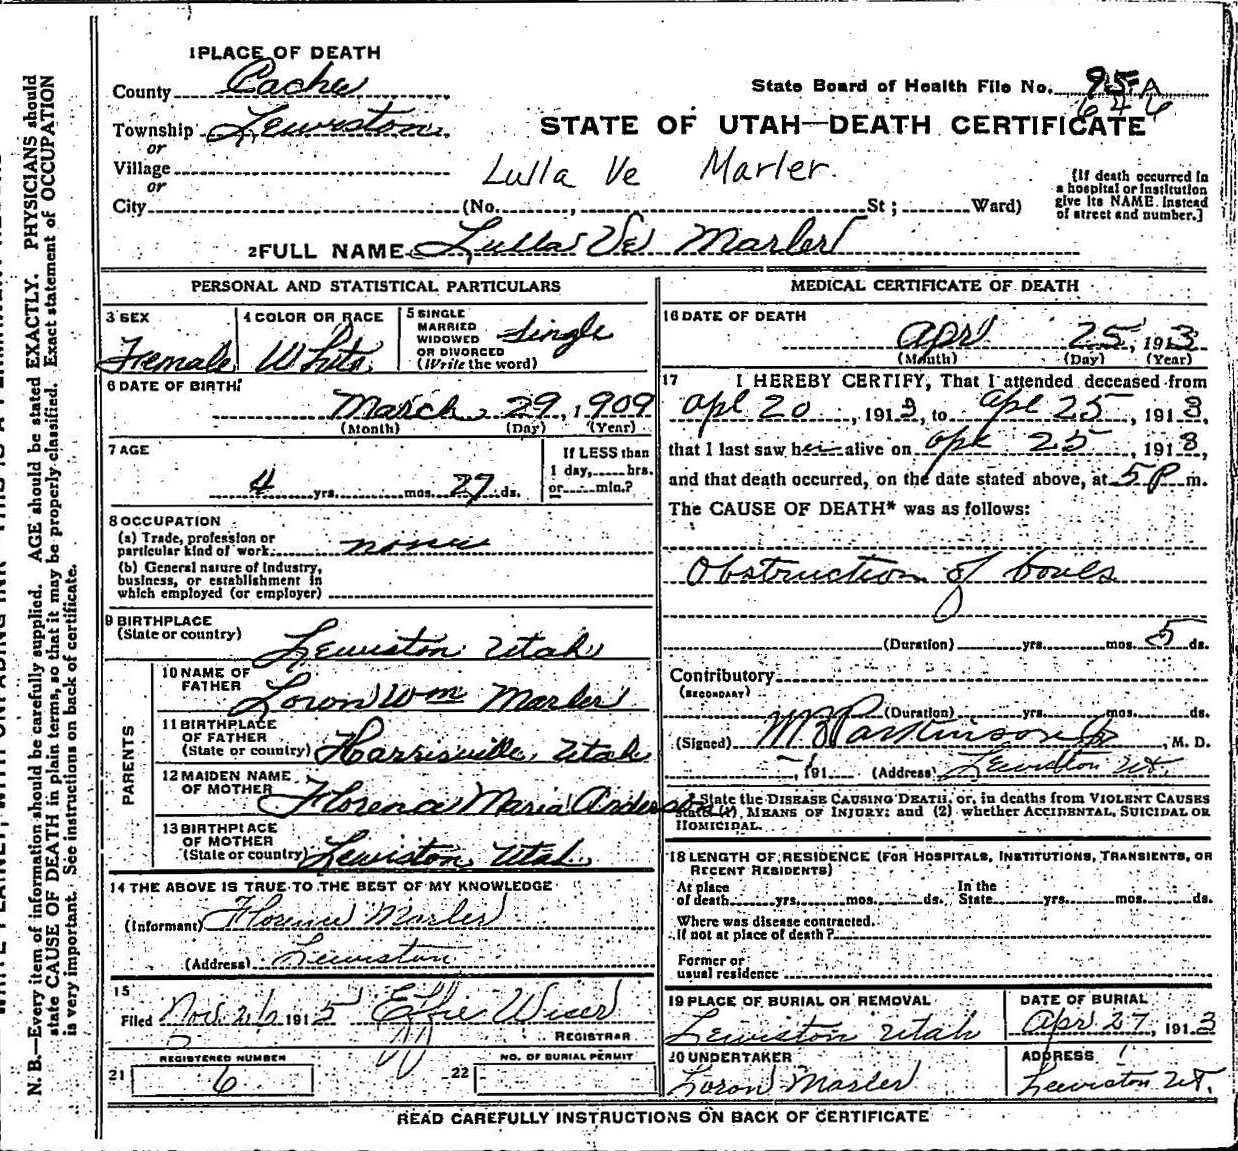 1 PLACE OF DEATH
County Cache
State Board of Health File No. 95 A
646
Township Lewiston
or
STATE OF UTAH—DEATH CERTIFICATE
Village
or
Lulla Ve Marler.
[If death occurred in
a hospital or institution
give its NAME instead
of street and number.]
City (No. , St ; Ward)
2 FULL NAME Lulla Ve Marler
PERSONAL AND STATISTICAL PARTICULARS
3 SEX
Female
4 COLOR OR RACE
White
5 SINGLE
MARRIED
WIDOWED
OR DIVORCED
(Write the word)
Single
6 DATE OF BIRTH
March 29, 1909
(Month) (Day) (Year)
7 AGE
4 yrs. mos. 27 ds.
If LESS than
1 day, hrs.
or min.?
8 OCCUPATION
(a) Trade, profession or
particular kind of work none
(b) General nature of Industry,
business, or establishment in
which employed (or employer)
9 BIRTHPLACE
(State or country) Lewiston Utah
PARENTS
10 NAME OF
FATHER Loron Wm Marler
11 BIRTHPLACE
OF FATHER
(State or country) Harrisville, Utah
12 MAIDEN NAME
OF MOTHER Florence Maria Anderson
13 BIRTHPLACE
OF MOTHER
(State or country) Lewiston, Utah
14 THE ABOVE IS TRUE TO THE BEST OF MY KNOWLEDGE
(Informant) Florence Marler
(Address) Lewiston
15
Filed Nov. 26 1915 Effie Wiser
REGISTRAR
REGISTERED NUMBER
21 6
NO. OF BURIAL PERMIT
22
MEDICAL CERTIFICATE OF DEATH
16 DATE OF DEATH
Apr 25, 1913
(Month) (Day) (Year)
17 I HEREBY CERTIFY, That I attended deceased from
Apl 20, 1913, to Apl 25, 1913,
that I last saw her alive on Apl 25, 1913,
and that death occurred, on the date stated above, at 5 P m.
The CAUSE OF DEATH* was as follows:
Obstruction of bowels
(Duration) yrs. mos. 5 ds.
Contributory
(SECONDARY)
(Duration) yrs. mos. ds.
(Signed) W B Parkinson Jr, M. D.
, 191 (Address) Lewiston Ut.
* State the DISEASE CAUSING DEATH, or, in deaths from VIOLENT CAUSES
state (1) MEANS OF INJURY; and (2) whether ACCIDENTAL, SUICIDAL OR
HOMICIDAL.
18 LENGTH OF RESIDENCE (FOR HOSPITALS, INSTITUTIONS, TRANSIENTS, OR
RECENT RESIDENTS)
At place
of death yrs. mos. ds.
In the
State yrs. mos. ds.
Where was disease contracted.
If not at place of death?
Former or
usual residence
19 PLACE OF BURIAL OR REMOVAL
Lewiston Utah
DATE OF BURIAL
Apr 27, 1913
20 UNDERTAKER
Loron Marler
ADDRESS
Lewiston UT.
READ CAREFULLY INSTRUCTIONS ON BACK OF CERTIFICATE
N. B.—Every item of information should be carefully supplied. AGE should be stated EXACTLY. PHYSICIANS should
state CAUSE OF DEATH in plain terms, so that it may be properly classified. Exact statement of OCCUPATION
is very important. See instructions on back of certificate.